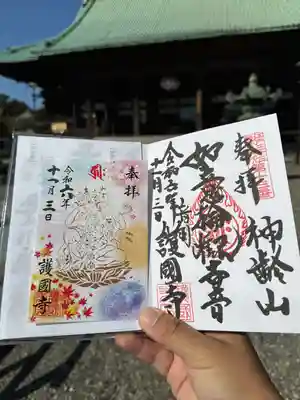 奉拝
令和六年
十一月三日
護國寺
奉拝
神齢山
如意輪観世音
護國寺
令和六年
十一月三日